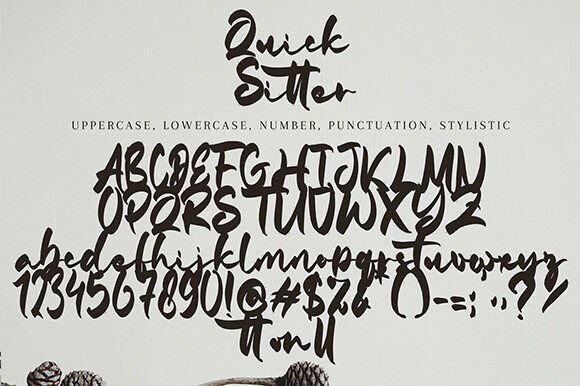 Quick
Sitter
UPPERCASE, LOWERCASE, NUMBER, PUNCTUATION, STYLISTIC
ABCDEFGHIJKLMN
OPQRSTUVWXYZ
abcdefhijklmnopqrstuvwxyz
1234567890!@#$%&*()-=;",?/
tt on ll